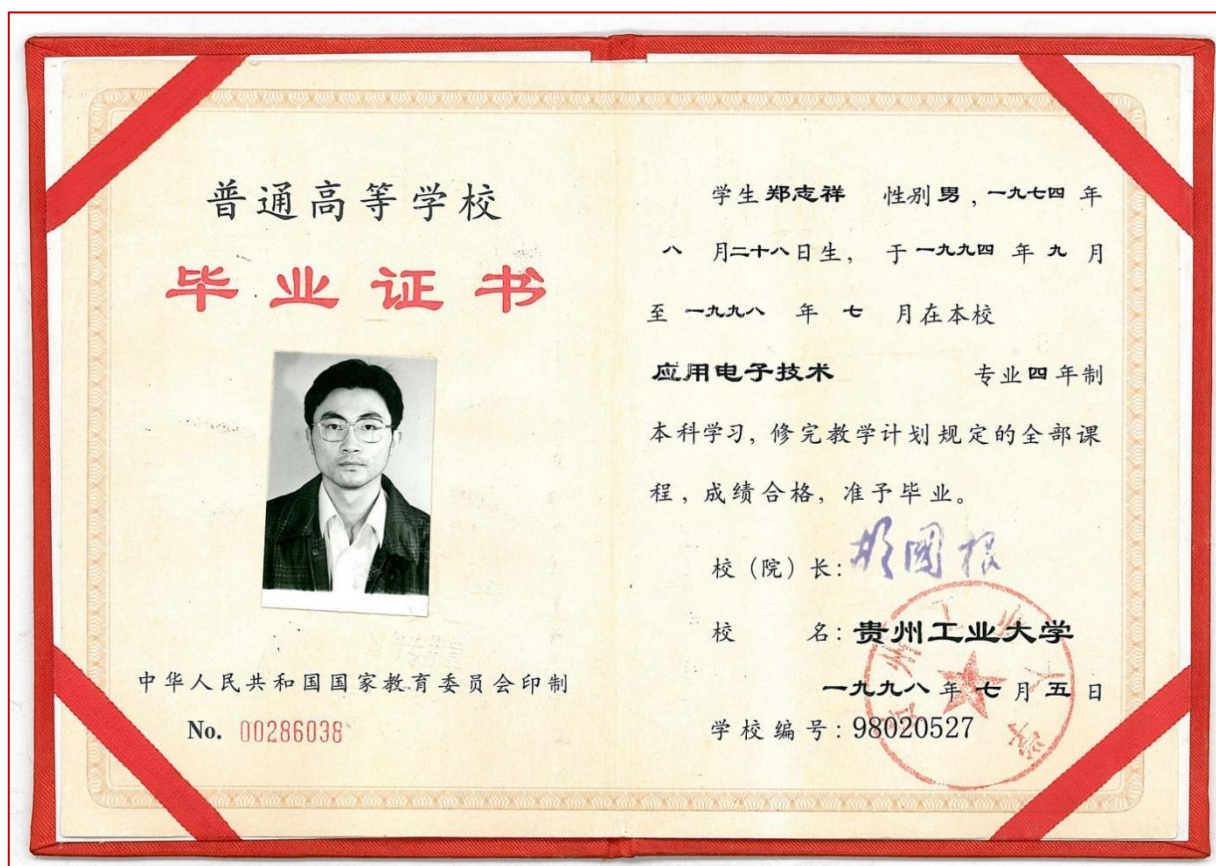 普通高等学校
毕业证书
中华人民共和国国家教育委员会印制
No. 00286038
学生郑志祥 性别男，一九七四年
八月二十八日生，于一九九四年九月
至一九九八年七月在本校
应用电子技术 专业四年制
本科学习，修完教学计划规定的全部课
程，成绩合格，准予毕业。
校（院）长：
校 名：贵州工业大学
一九九八年七月五日
学校编号：98020527